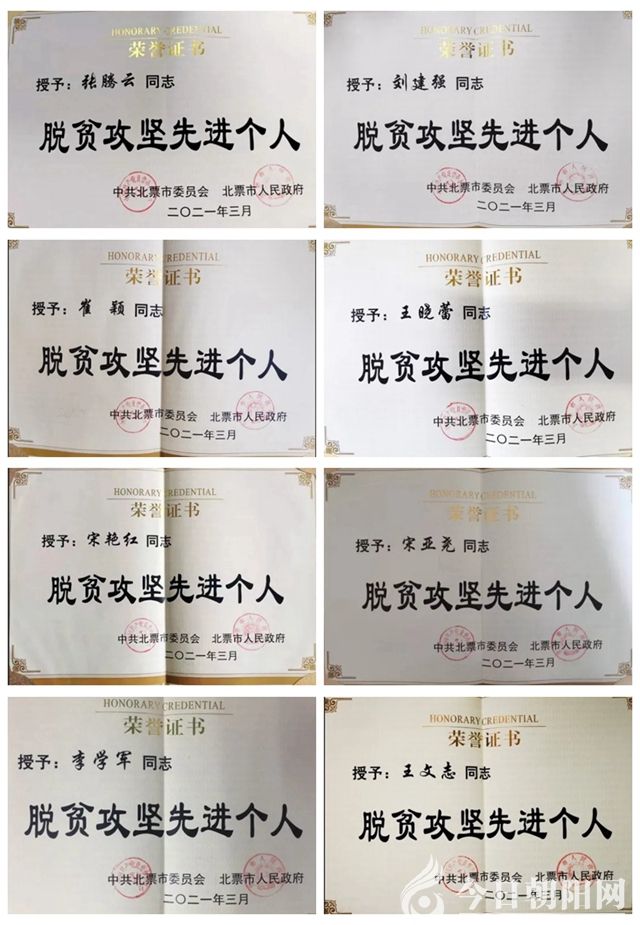 HONORARY CREDENTIAL
荣誉证书
授予：张腾云 同志
脱贫攻坚先进个人
中共北票市委员会 北票市人民政府
二〇二一年三月
HONORARY CREDENTIAL
荣誉证书
授予：刘建强 同志
脱贫攻坚先进个人
中共北票市委员会 北票市人民政府
二〇二一年三月
HONORARY CREDENTIAL
荣誉证书
授予：崔颖 同志
脱贫攻坚先进个人
中共北票市委员会 北票市人民政府
二〇二一年三月
HONORARY CREDENTIAL
荣誉证书
授予：王晓蕾 同志
脱贫攻坚先进个人
中共北票市委员会 北票市人民政府
二〇二一年三月
HONORARY CREDENTIAL
荣誉证书
授予：宋艳红 同志
脱贫攻坚先进个人
中共北票市委员会 北票市人民政府
二〇二一年三月
HONORARY CREDENTIAL
荣誉证书
授予：宋亚尧 同志
脱贫攻坚先进个人
中共北票市委员会 北票市人民政府
二〇二一年三月
HONORARY CREDENTIAL
荣誉证书
授予：李学军 同志
脱贫攻坚先进个人
中共北票市委员会 北票市人民政府
二〇二一年三月
HONORARY CREDENTIAL
荣誉证书
授予：王文志 同志
脱贫攻坚先进个人
中共北票市委员会 北票市人民政府
二〇二一年三月
今日朝阳网